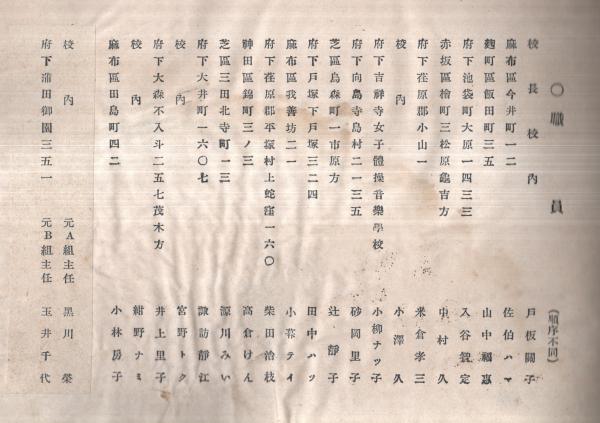 〇職員
(順序不同)
校長 校内 戸板關子
麻布區今井町一二 佐伯ハマ
麴町區飯田町三五 山中福惠
府下池袋町大原一四三三 入谷智定
赤坂區檜町三松原龜吉方 中村久
府下荏原郡小山一 米倉孝三
校内 小澤久
府下吉祥寺女子體操音樂學校 小柳ナツ子
府下向島寺島村二一三五 砂岡里子
芝區烏森町一市原方 辻靜子
府下戸塚下戸塚三二四 田中ハツ
麻布區我善坊二一 小幕テイ
府下荏原郡平塚村上蛇窪一六〇 柴田治枝
神田區錦町三ノ三 高倉けん
芝區三田北寺町一三 源川みい
府下大井町一六〇七 諏訪靜江
校内 宮野トク
府下大森不入斗二五七茂木方 井上里子
校内 紺野ナミ
麻布區田島町四二 小林房子
校内 元A組主任 黑川榮
府下蒲田御園三五一 元B組主任 玉井千代